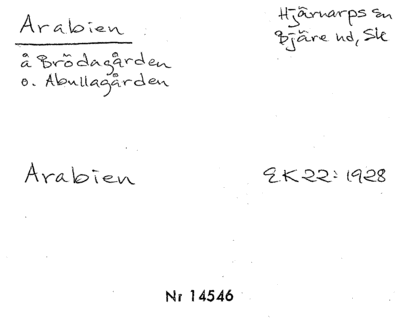 Arabien
Hjärnarps sn
Bjäre hd, Sk
å Brödagården
o. Abullagården
Arabien
EK22:1928
Nr 14546